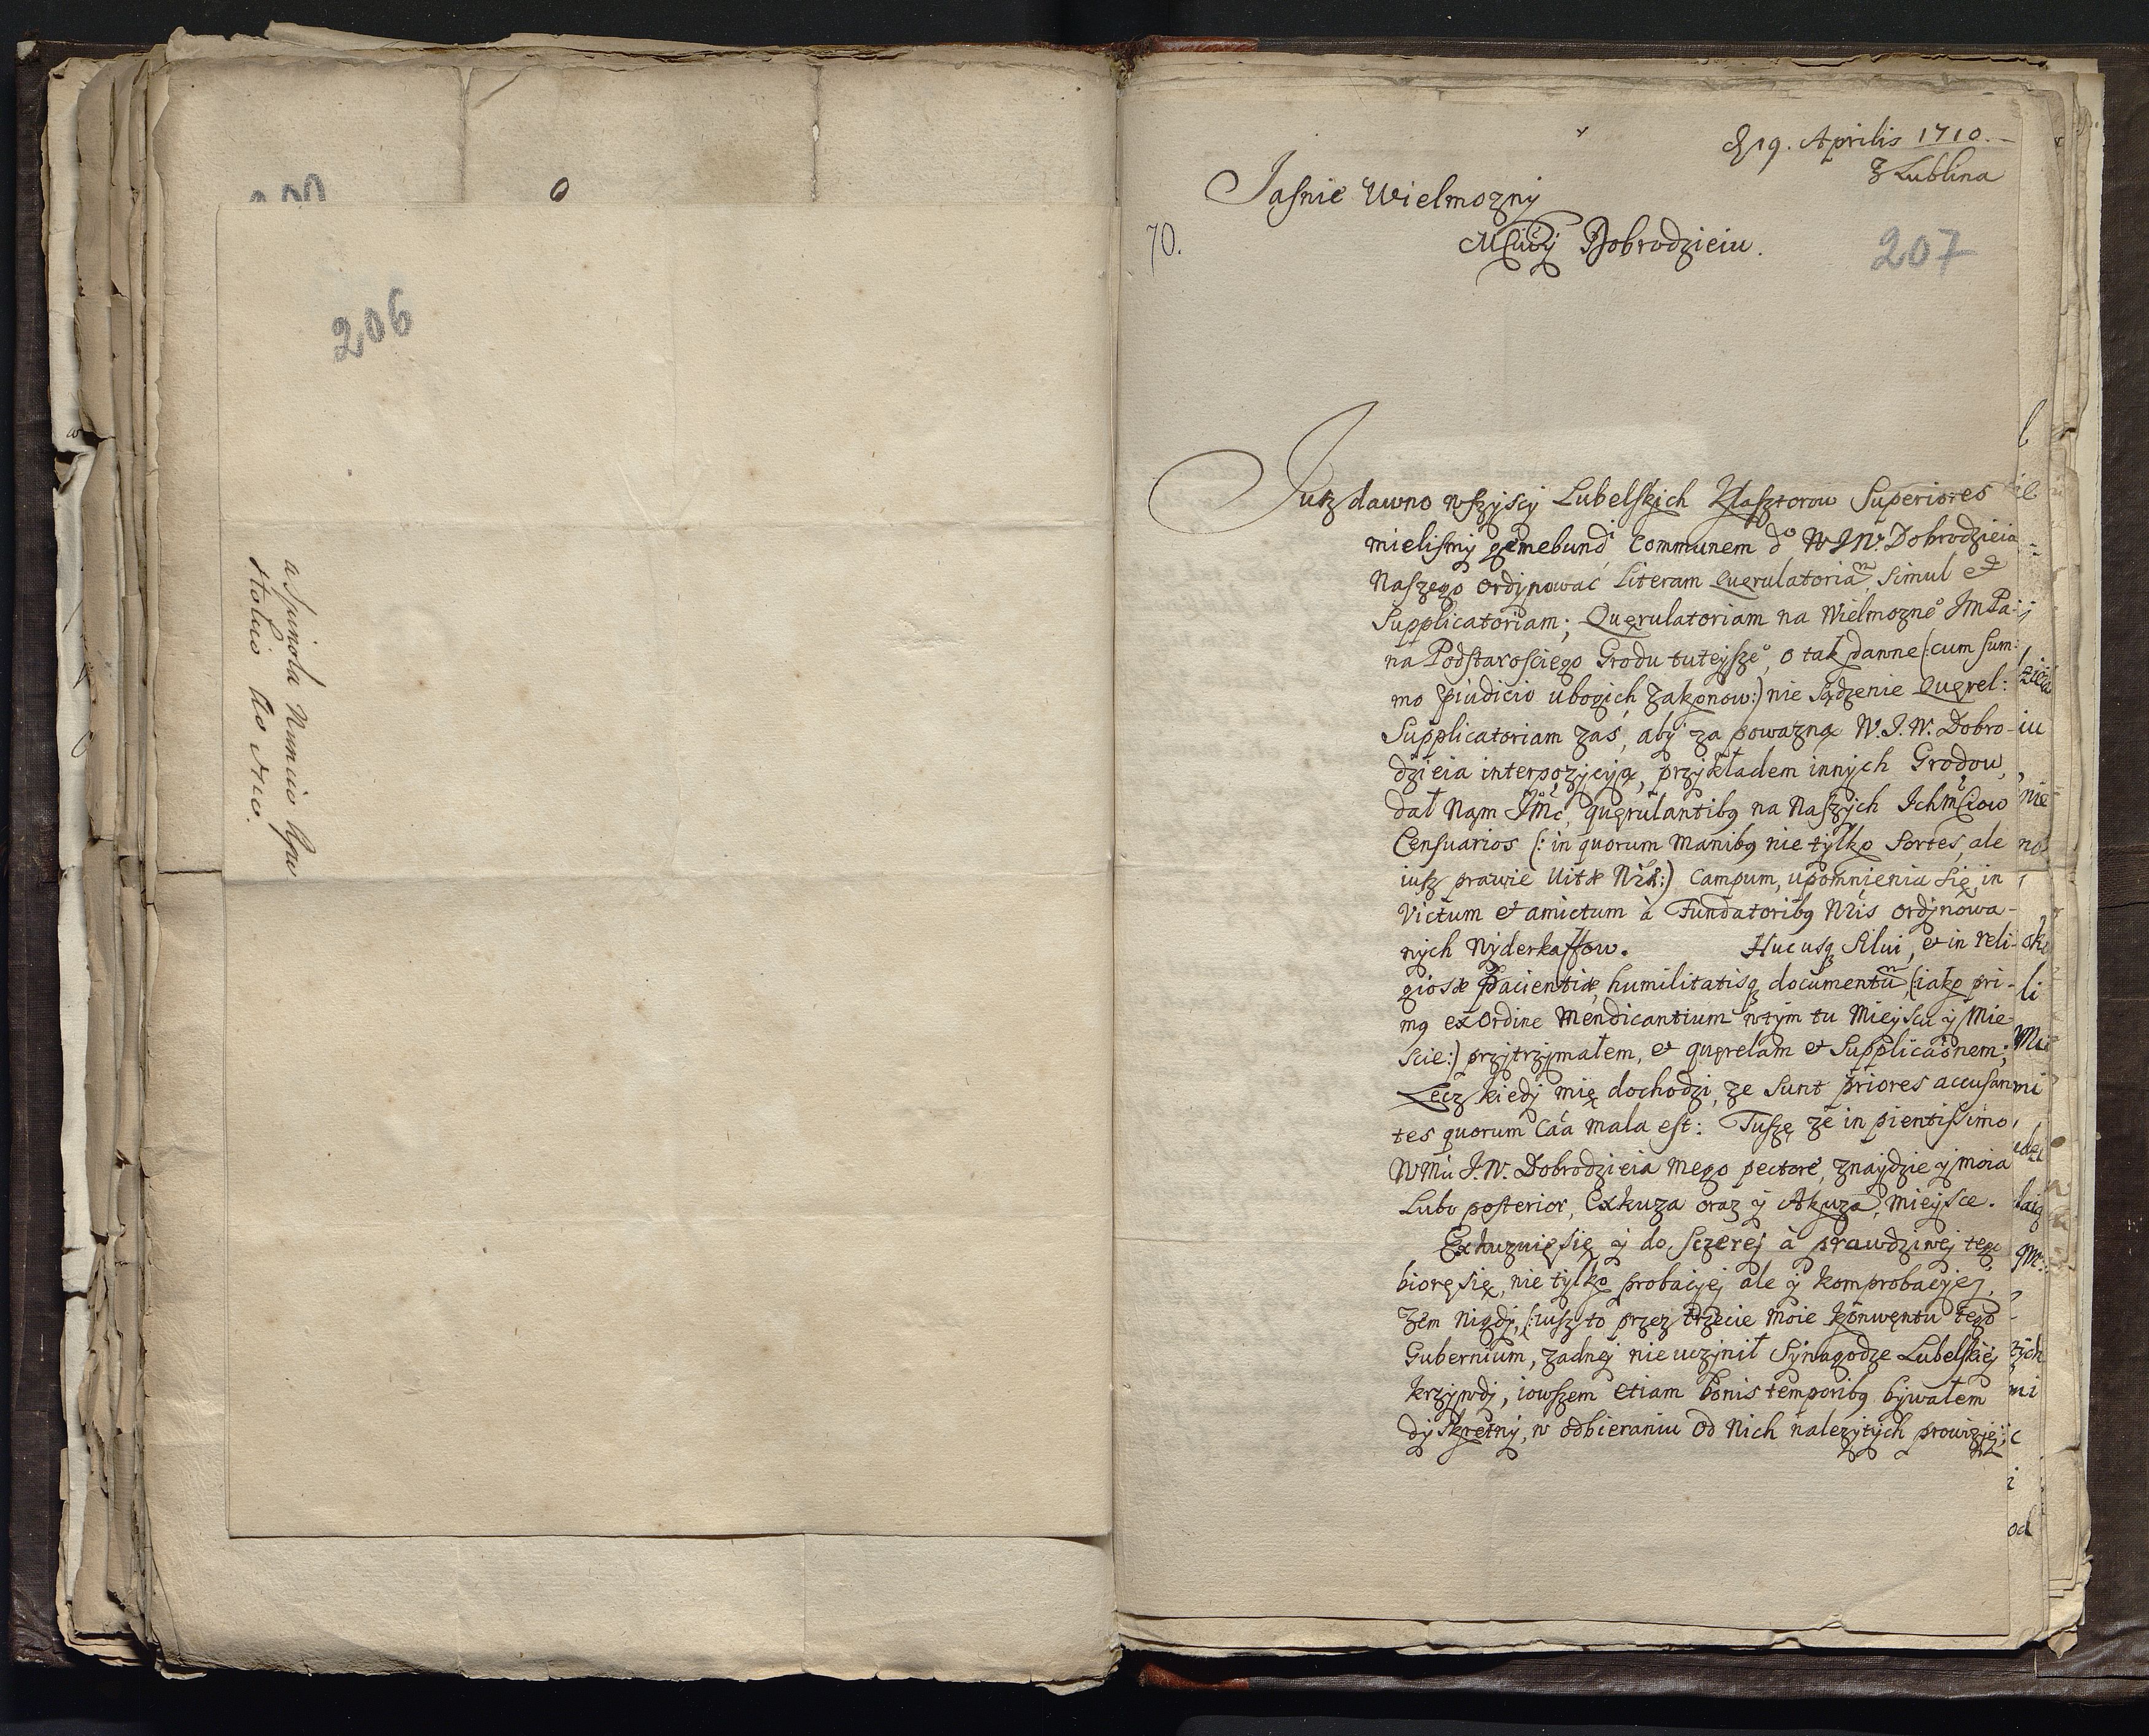 206
a Spinola Nuncio Apo
stolico ad Nro.
D 19. Aprilis 1710.
z Lublina
Jasnie Wielmozny
Msciwy Dobrodzieiu.
70.
207
Jusz dawno wszyscy Lubelskich Klasztorow Superiores
mielismy gemebund communem do W J W. Dobrodzieia
Naszego ordynować Literam querulatoriam simul et
Supplicatoriam; Querulatoriam na Wielmozno JmPa-
na Podstarosciego Grodu tuteysze, o tak dawne (: cum sum:
mo piudicio ubogich Zakonow:) nie sądzenie Querel:
Supplicatoriam zaś, aby za powazną W. J. W. Dobro-
dzieia interpozycyią, przykładem innych Grodow,
dał Nam Jmć, querulantibq na Naszych Ichmsciow
Censuarios (: in quorum manibq nie tylko Sortes, ale
iusz prawie vitæ Nræ:) Campum, upomnienia się, in
Victum et amictum à Fundatoribq Nris ordynowa-
nych Wyderkaffow. Hucusq Silui, et in reli-
giosæ Pacientiæ, humilitatisq documentum, (iako pri-
mq ex Ordine Mendicantium w tym tu Mieyscu y Mie-
scie:) przytrzymałem, et querelam et Supplicaonem;
Lecz kiedy mię dochodzi, ze sunt priores accusan
tes quorum Caa mala est: Tuszę ze in pientissimo
WMu J. W. Dobrodzieia mego pectore, znaydzie y moia
Lubo posterior, Exkuza oraz y Akuza, mieysce.
Exkuzuię się y do sczerej a prawdziwej tey
biorę się, nie tylko probacyej ale y komprobacyej,
Zem nigdy, (: iusz to przez trzecie moie konwentu tego
Gubernium, zadnej nie uczynił Synagodze Lubelskiej
krzywdy, iowszem etiam bonis temporibq bywałem
dyskretny, w odbieraniu od Nich nalezytych prowizyej;